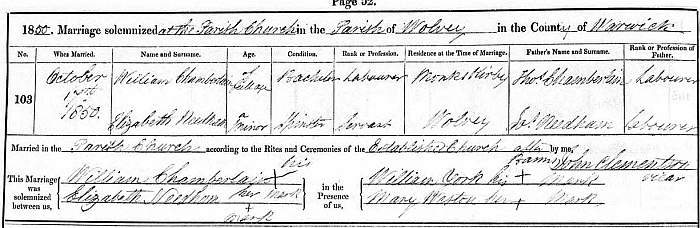 Page 52.
1850. Marriage solemnized at the Parish Church in the Parish of Wolvey in the County of Warwick
No. When Married. Name and Surname. Age. Condition. Rank or Profession. Residence at the Time of Marriage. Father's Name and Surname. Rank or Profession of Father.
103 October 1850. William Chamberlain Full age Bachelor Labourer Monks Kirby Thos Chamberlin Labourer
Elizabeth Needham Minor Spinster Servant Wolvey Jos. Needham Labourer
Married in the Parish Church according to the Rites and Ceremonies of the Established Church after by me,
This Marriage was solemnized between us, William Chamberlain his + mark in the Presence of us, William Cork his + Mark John Clementson Vicar
Elizabeth Needham her + mark Mary Waston her + Mark.